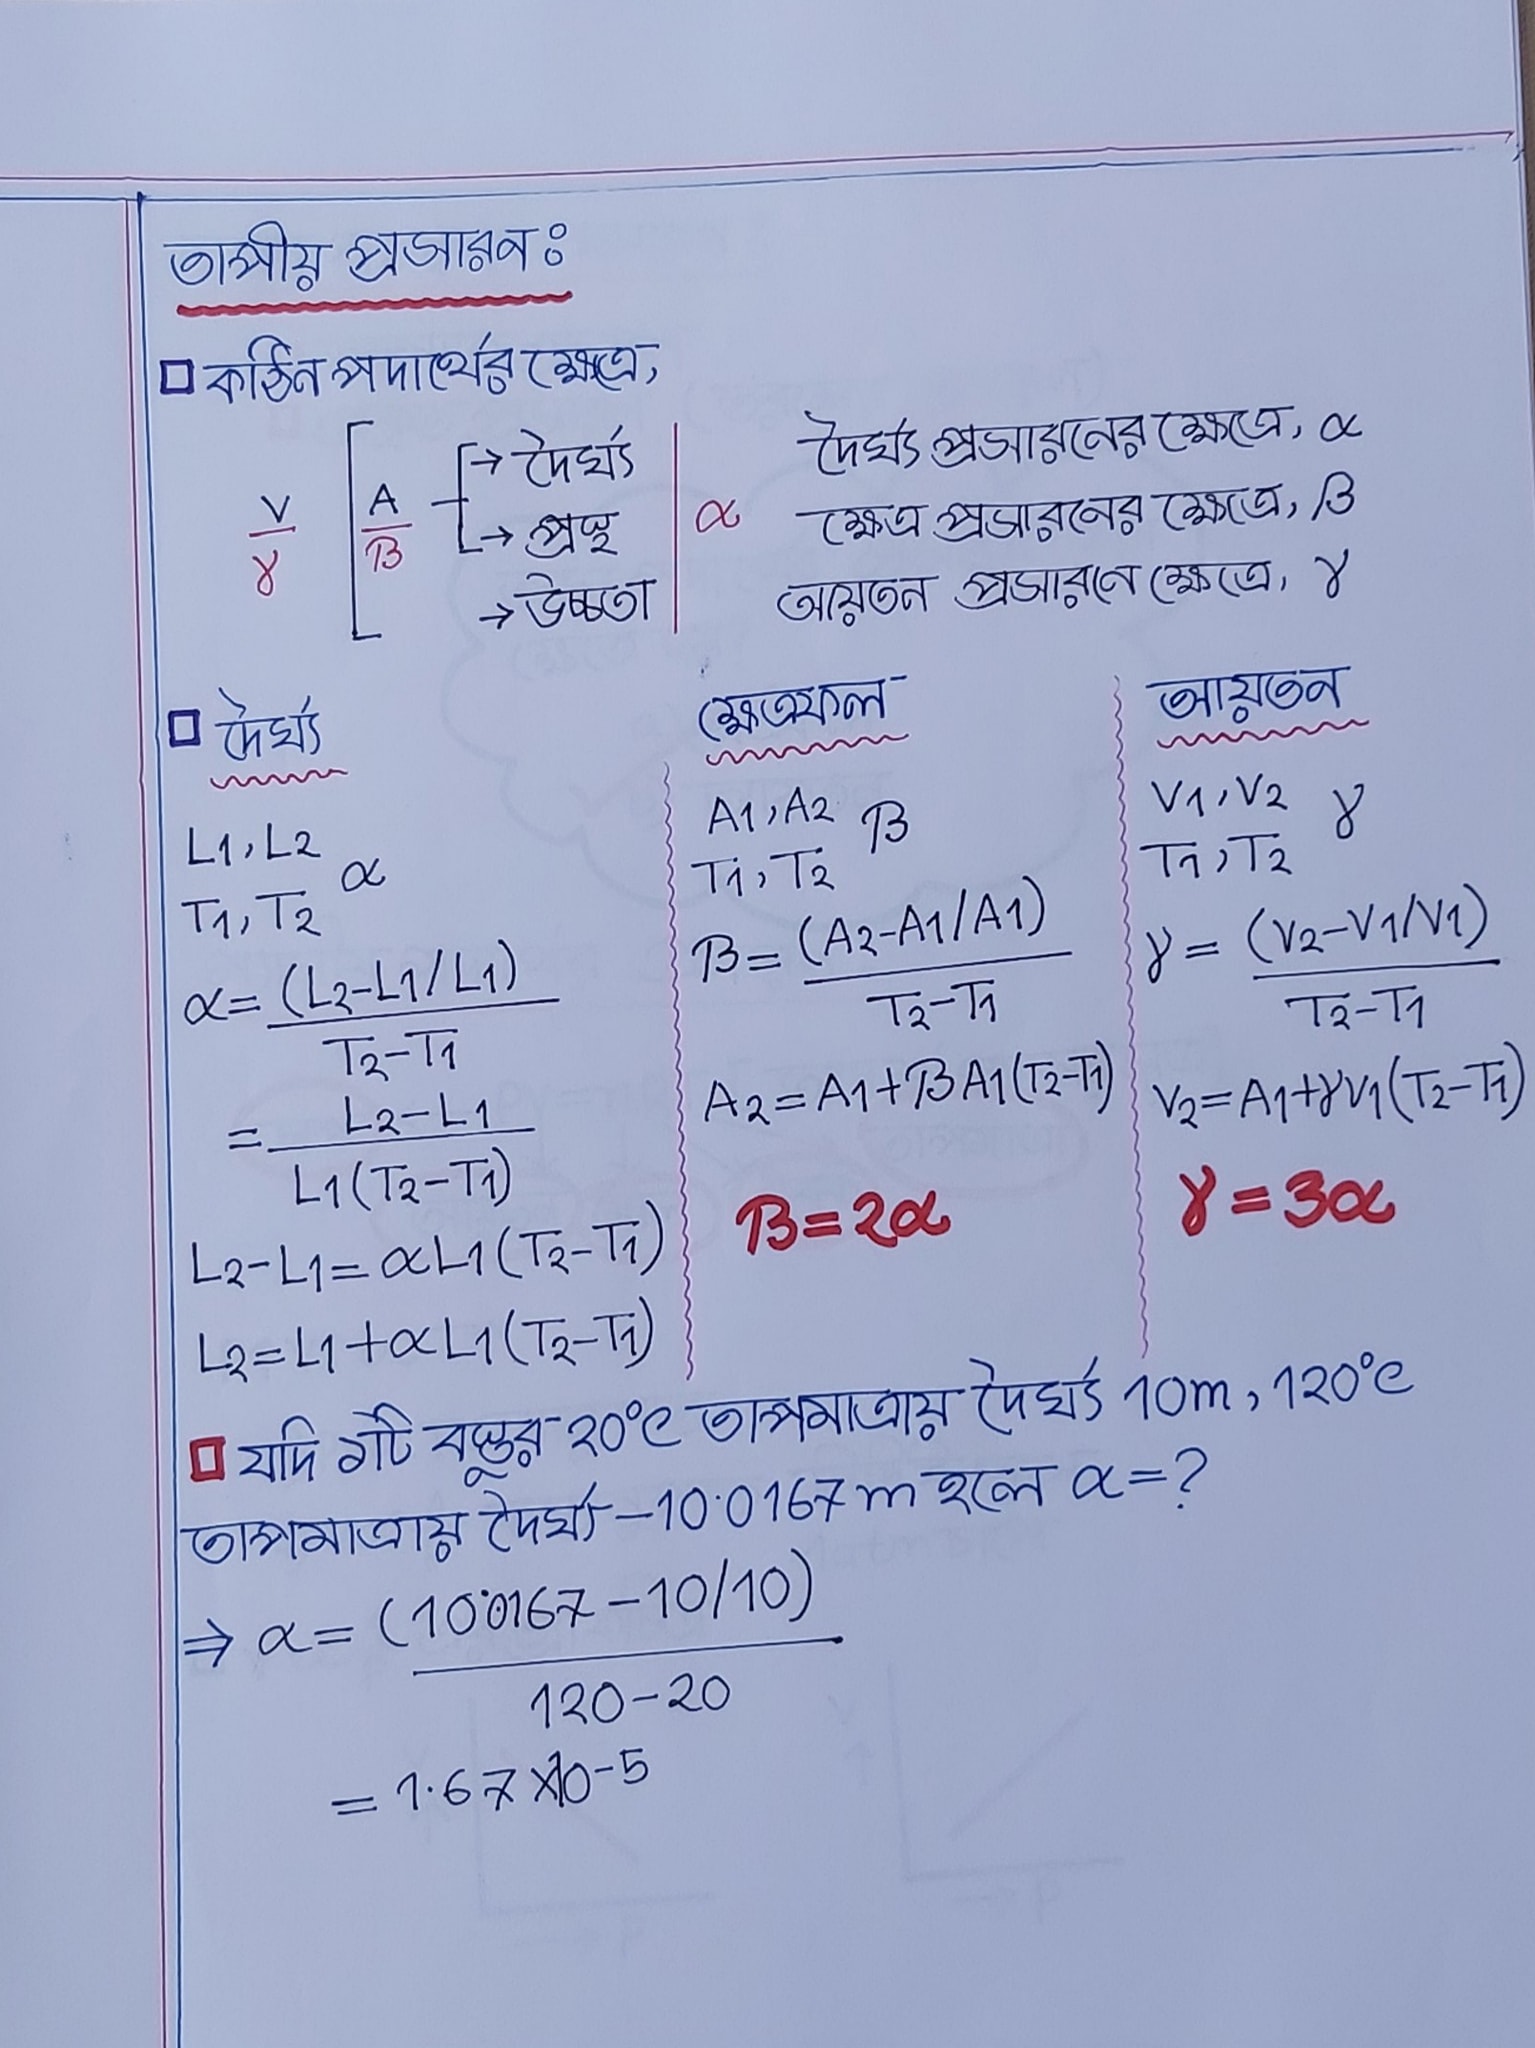 তাপীয় প্রসারন ঃ
□ কঠিন পদার্থের ক্ষেত্রে,
V/γ [ A/β [ → দৈর্ঘ্য
→ প্রস্থ
→ উচ্চতা
α
দৈর্ঘ্য প্রসারনের ক্ষেত্রে, α
ক্ষেত্র প্রসারনের ক্ষেত্রে, β
আয়তন প্রসারনে ক্ষেত্রে, γ
□ দৈর্ঘ্য
L1, L2
T1, T2 α
α = (L2-L1/L1) / T2-T1
= L2-L1 / L1(T2-T1)
L2-L1 = αL1(T2-T1)
L2 = L1+αL1(T2-T1)
ক্ষেত্রফল
A1, A2 β
T1, T2
β = (A2-A1/A1) / T2-T1
A2 = A1+βA1(T2-T1)
β = 2α
আয়তন
V1, V2 γ
T1, T2
γ = (V2-V1/V1) / T2-T1
V2 = A1+γV1(T2-T1)
γ = 3α
□ যদি ১টি বস্তুর 20°C তাপমাত্রায় দৈর্ঘ্য 10m, 120°C
তাপমাত্রায় দৈর্ঘ্য - 10.0167m হলে α = ?
⇒ α = (10.0167-10/10) / 120-20
= 1.67×10-5